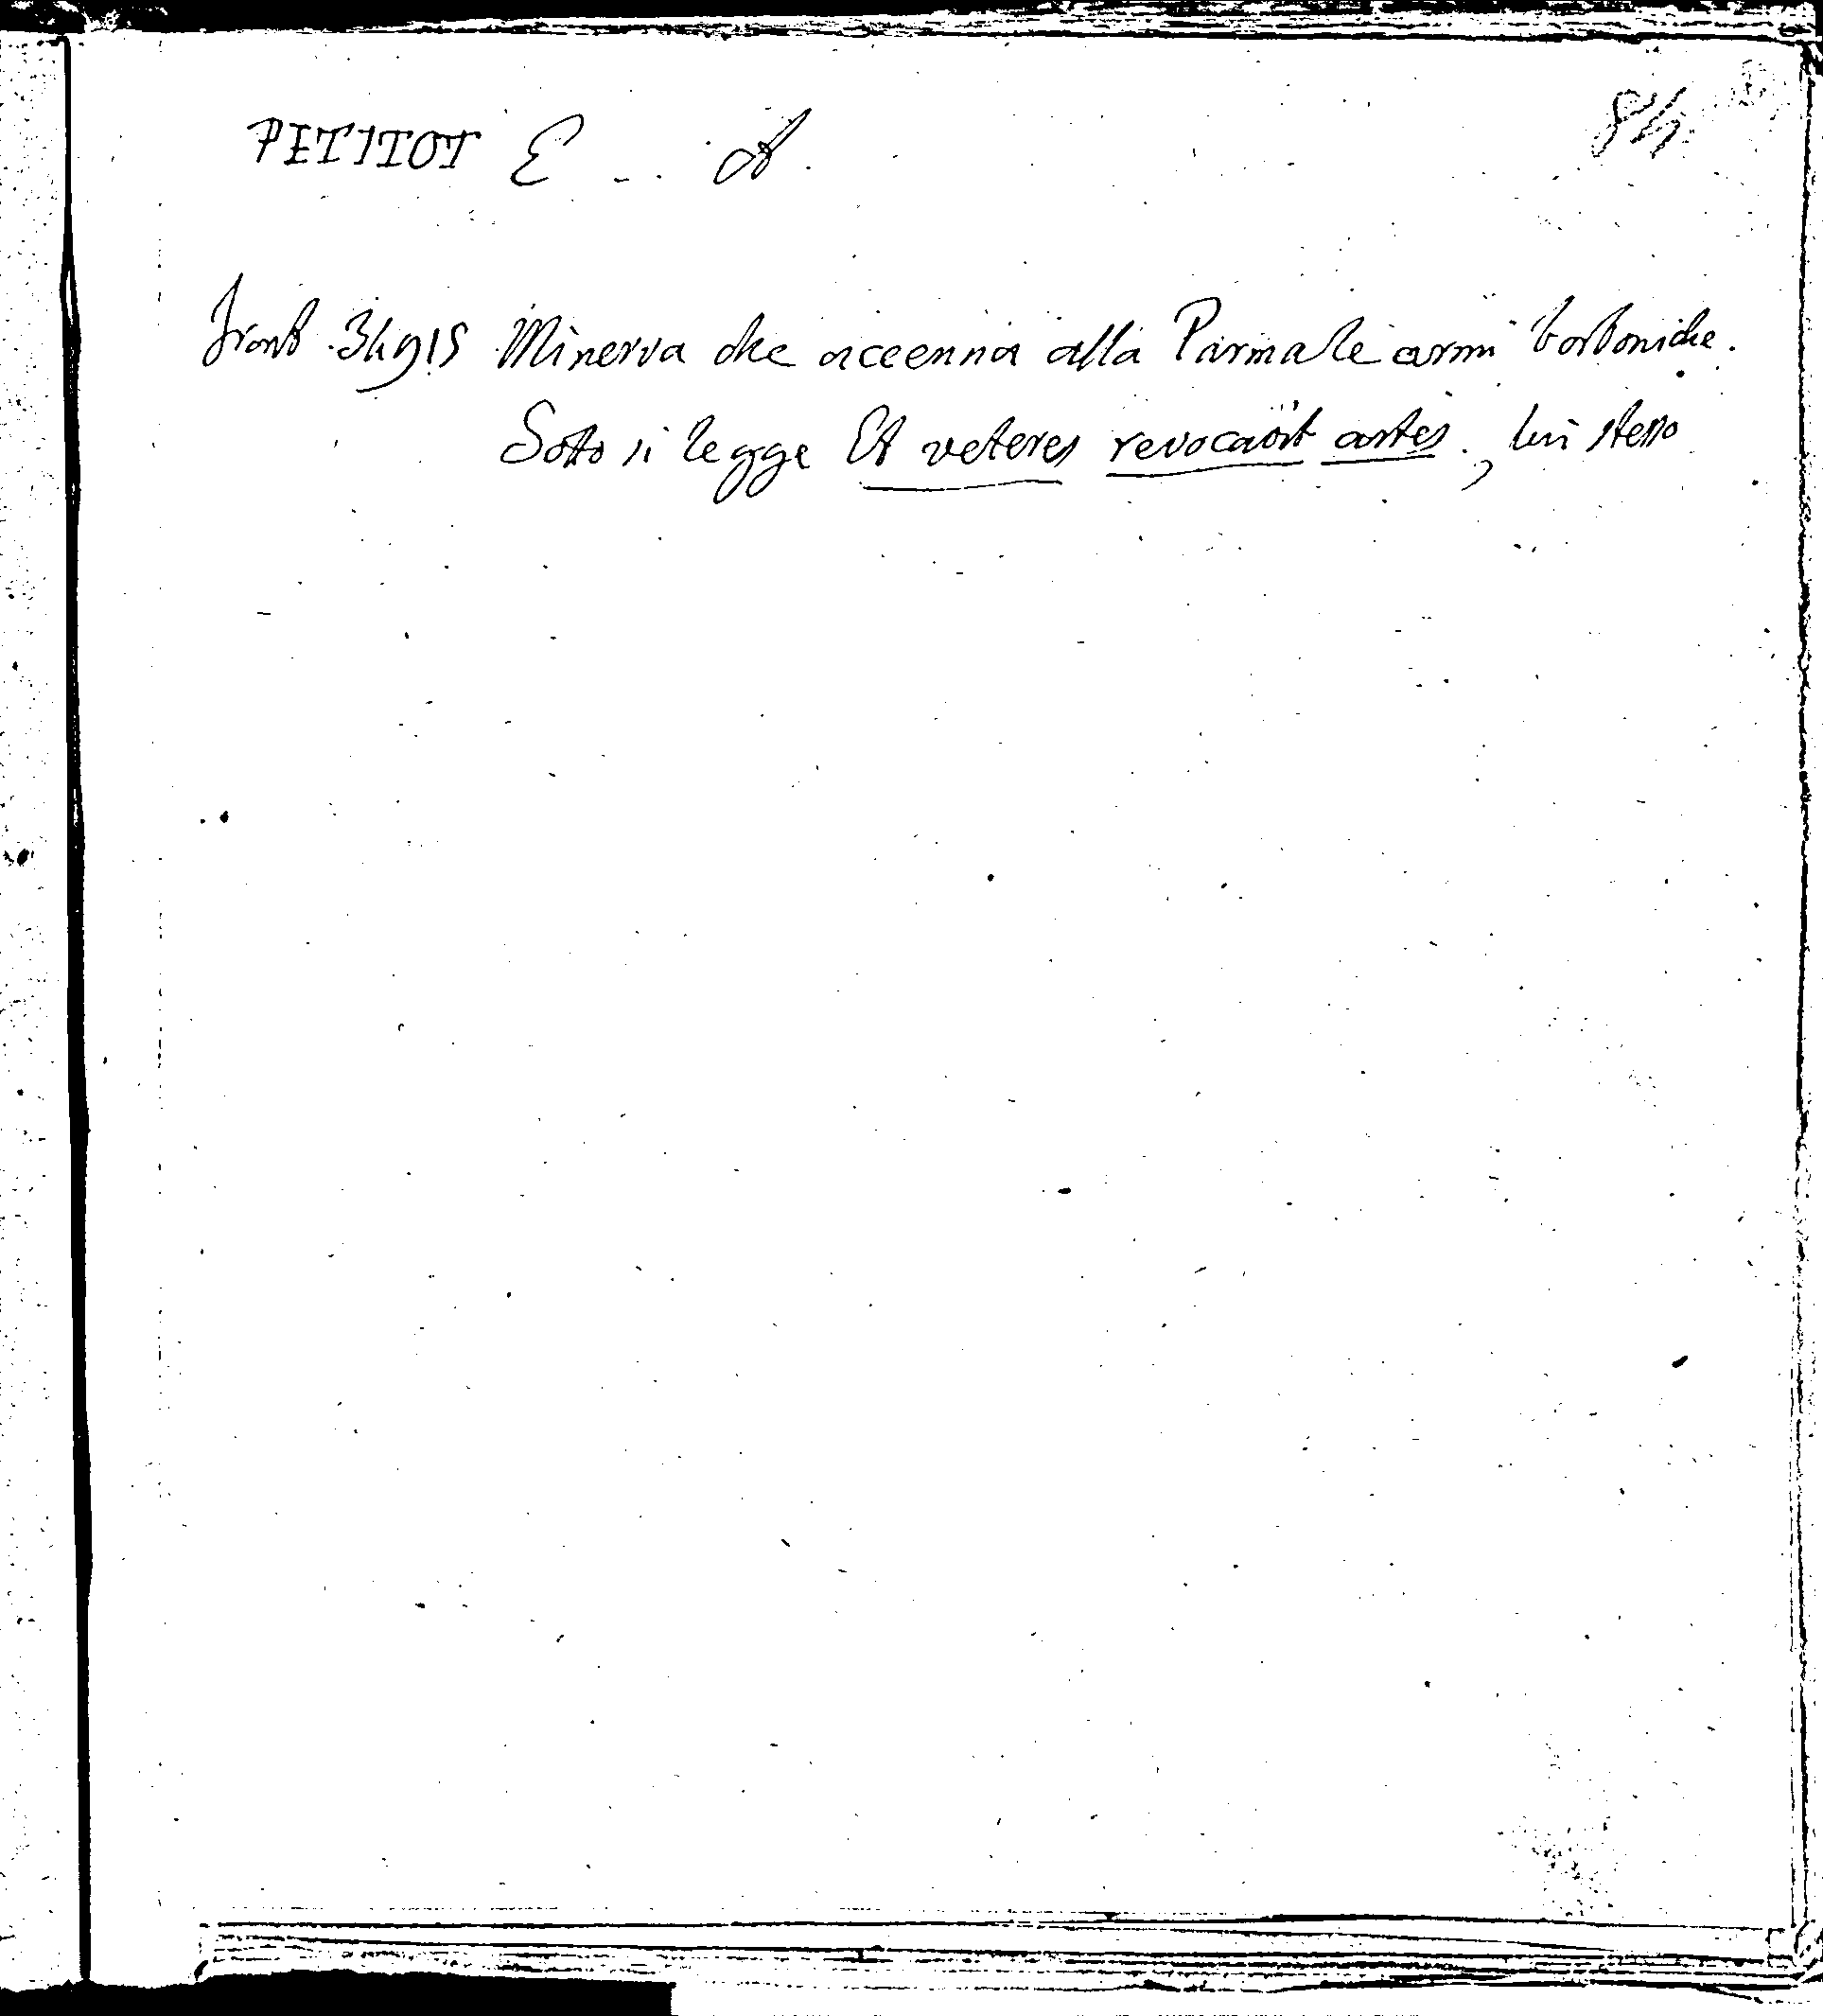 PETITOT E... A. 84
Front. 34915 Minerva che accenna alla Parma le armi borboniche.
Sotto si legge Et veteres revocavit artes., lui stesso